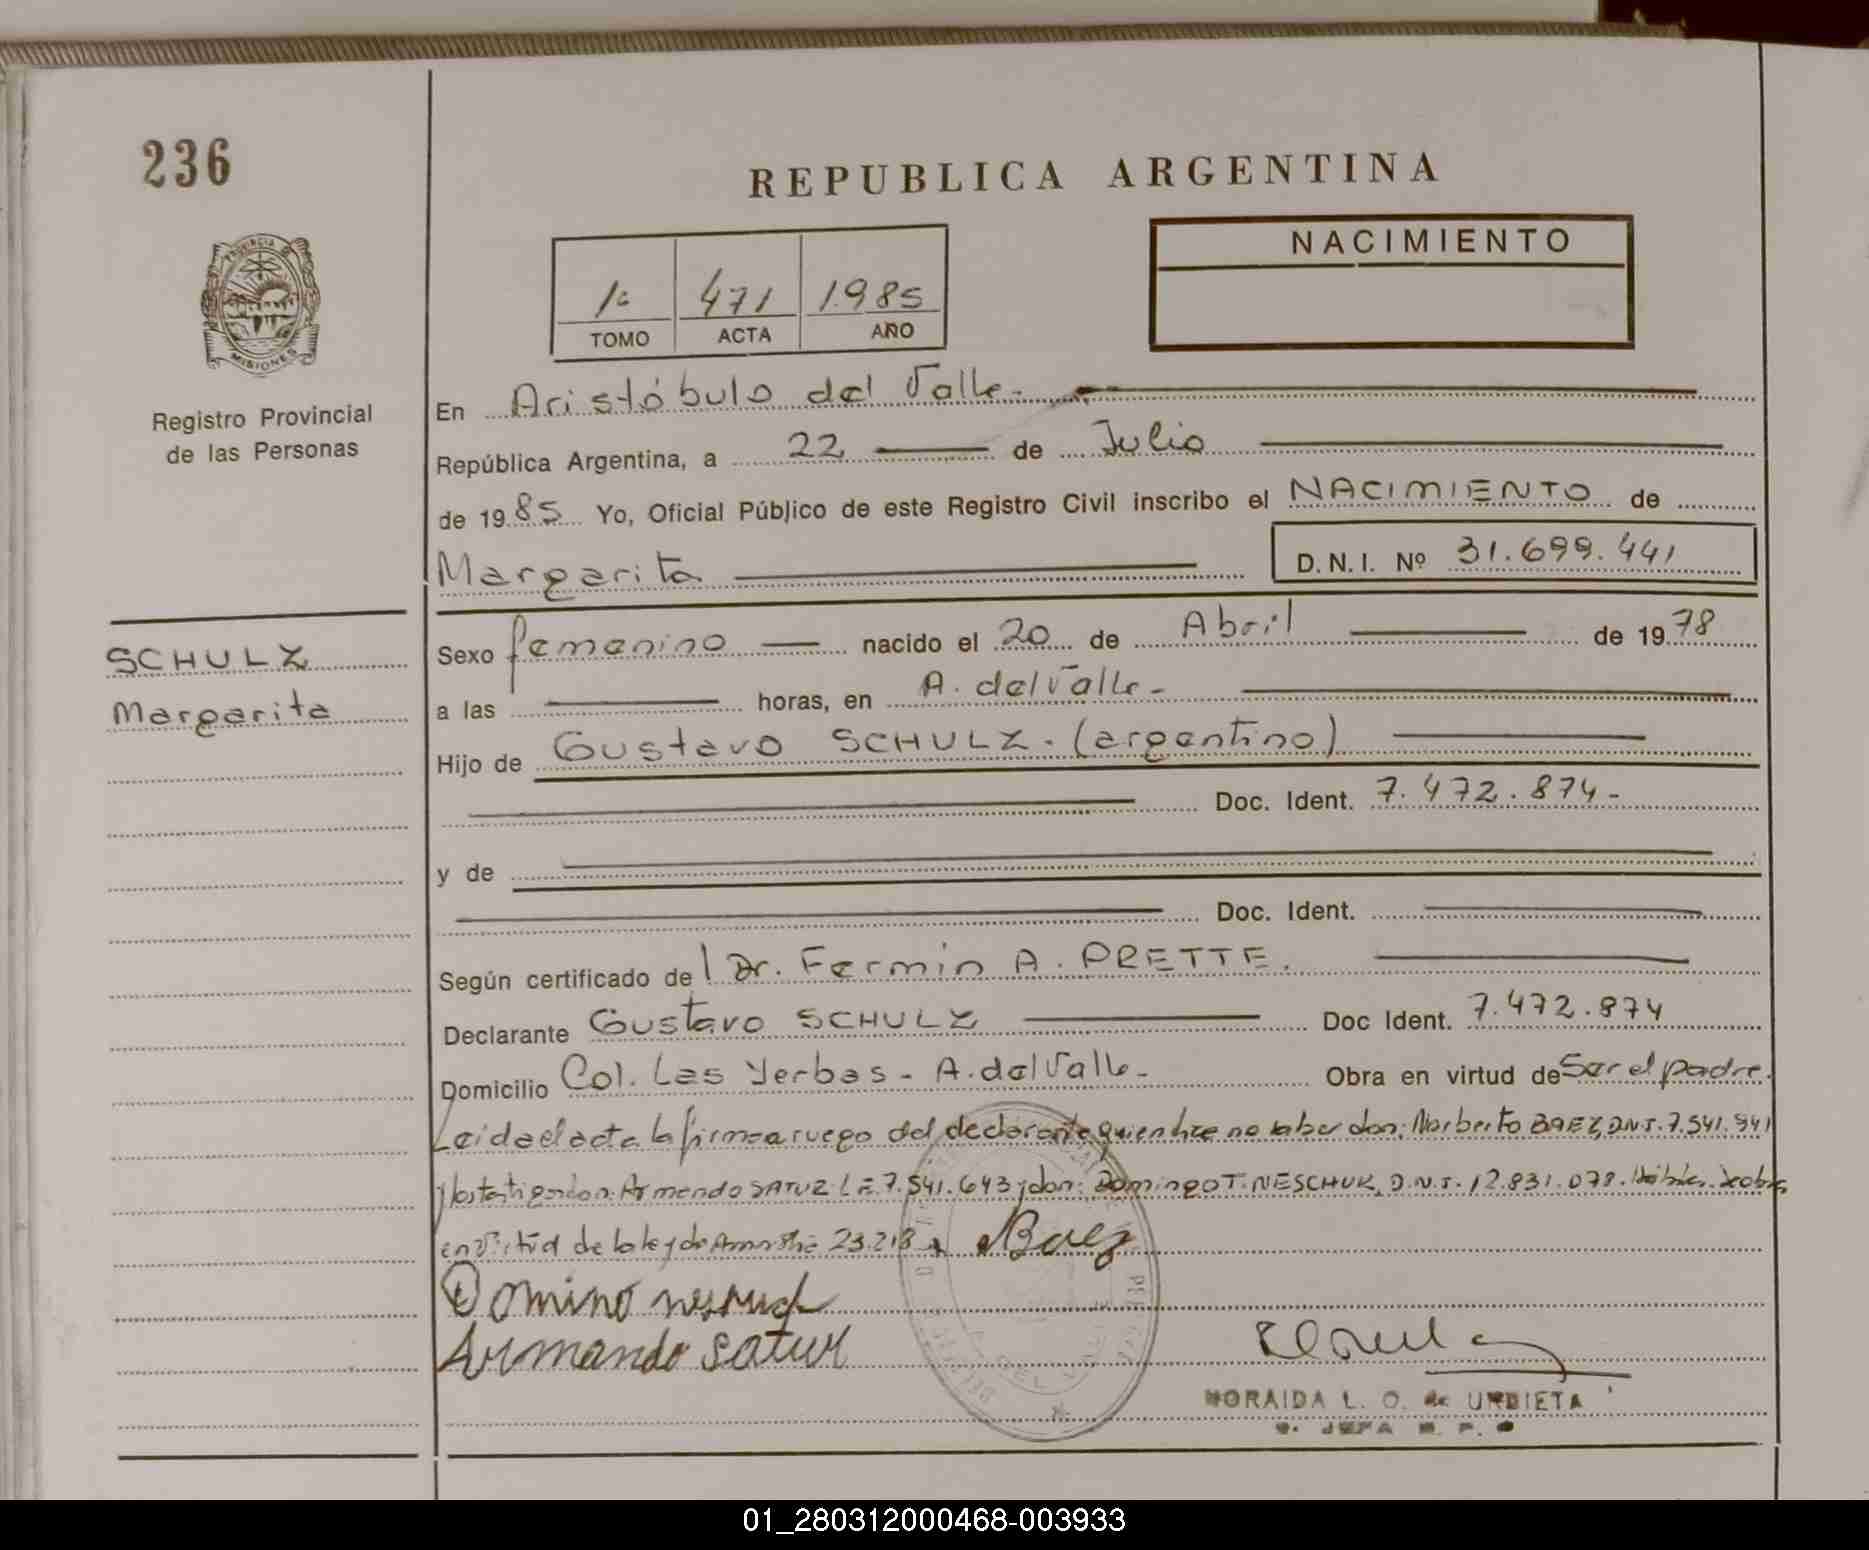 236
REPUBLICA ARGENTINA
PROVINCIA DE
MISIONES
Registro Provincial
de las Personas
1º 471 1985
TOMO ACTA AÑO
NACIMIENTO
En Aristóbulo del Valle.
República Argentina, a 22 de Julio
de 1985 Yo, Oficial Público de este Registro Civil inscribo el NACIMIENTO de
Margarita D.N.I. Nº 31.699.441
SCHULZ
Margarita
Sexo femenino nacido el 20 de Abril de 1978
a las horas, en A. del Valle-
Hijo de Gustavo SCHULZ. (argentino)
Doc. Ident. 7.472.874-
y de
Doc. Ident.
Según certificado de l Dr. Fermin A. PRETTE.
Declarante Gustavo SCHULZ Doc Ident. 7.472.874
Domicilio Col. Las Yerbas - A. del Valle- Obra en virtud de Ser el padre.
Leida el acta la firma a ruego del declarante quien dice no saber don: Norberto BAEZ, D.N.I. 7.541.941
y los testigos don: Armando SATUR L.E. 7.541.643 y don: Domingo T. NESCHUK, D.N.I. 12.831.078.
en virtud de la ley de Amnistia 23.218
Baez
Domino
Armando Satur
NORAIDA L. O. de URDIETA
JEFA R. P.
01_280312000468-003933